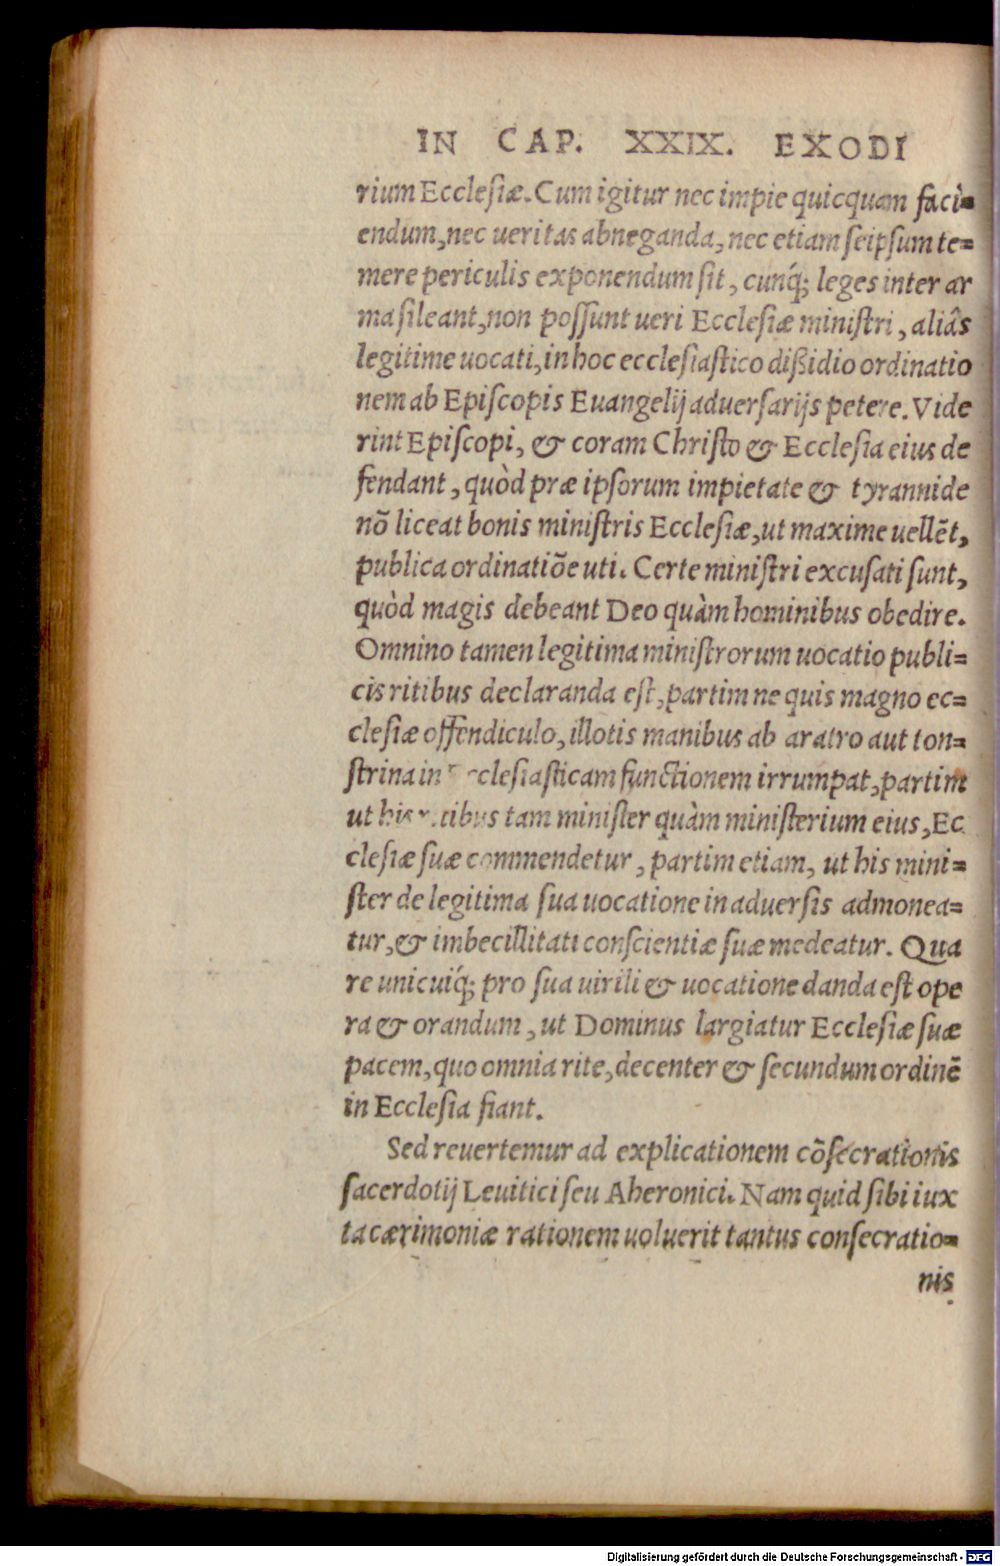 IN CAP. XXIX. EXODI
rium Ecclesiæ. Cum igitur nec impie quicquam facì-
endum, nec ueritas abneganda, nec etiam seipsum te-
mere periculis exponendum sit, cunq́; leges inter ar
ma sileant, non possunt ueri Ecclesiæ ministri, aliâs
legitime uocati, in hoc ecclesiastico dißidio ordinatio
nem ab Episcopis Euangelij aduersarijs petere. Vide
rint Episcopi, & coram Christo & Ecclesia eius de
fendant, quòd præ ipsorum impietate & tyrannide
nō liceat bonis ministris Ecclesiæ, ut maxime uellēt,
publica ordinatiōe uti. Certe ministri excusati sunt,
quòd magis debeant Deo quàm hominibus obedire.
Omnino tamen legitima ministrorum uocatio publi-
cis ritibus declaranda est, partim ne quis magno ec-
clesiæ offendiculo, illotis manibus ab aratro aut ton-
strina in Ecclesiasticam functionem irrumpat, partim
ut his ritibus tam minister quàm ministerium eius, Ec
clesiæ suæ commendetur, partim etiam, ut his mini-
ster de legitima sua uocatione in aduersis admonea-
tur, & imbecillitati conscientiæ suæ medeatur. Qua
re unicuiq́; pro sua uirili & uocatione danda est ope
ra & orandum, ut Dominus largiatur Ecclesiæ suæ
pacem, quo omnia rite, decenter & secundum ordinē
in Ecclesia fiant.
Sed reuertemur ad explicationem cōsecrationis
sacerdotij Leuitici seu Aheronici. Nam quid sibi iux
ta cærimoniæ rationem uoluerit tantus consecratio-
nis
Digitalisierung gefördert durch die Deutsche Forschungsgemeinschaft - DFG